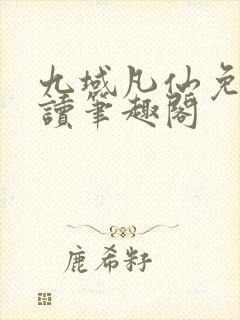 九域凡仙免
讀筆趣閣
鹿希籽